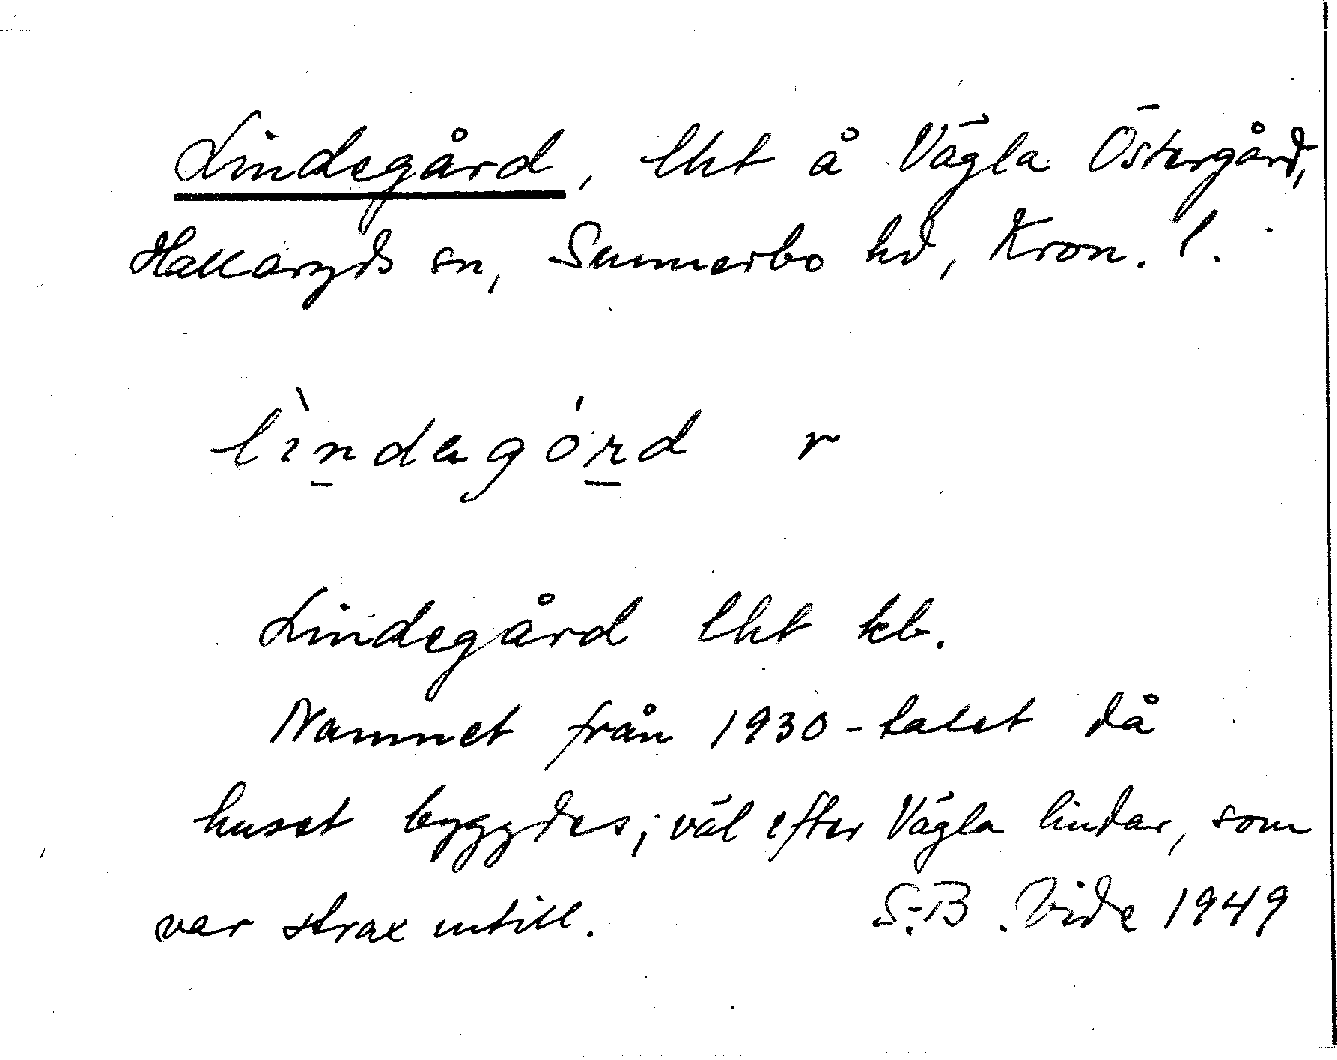 Lindegård, lht å Vägla Östergård,
Hallaryds sn, Sunnerbo hd, Kron. l.
lìndagórd r
Lindegård lht kb.
Namnet från 1930-talet då
huset byggdes; väl efter Vägla lindar, som
var strax intill. S.-B. Vide 1949